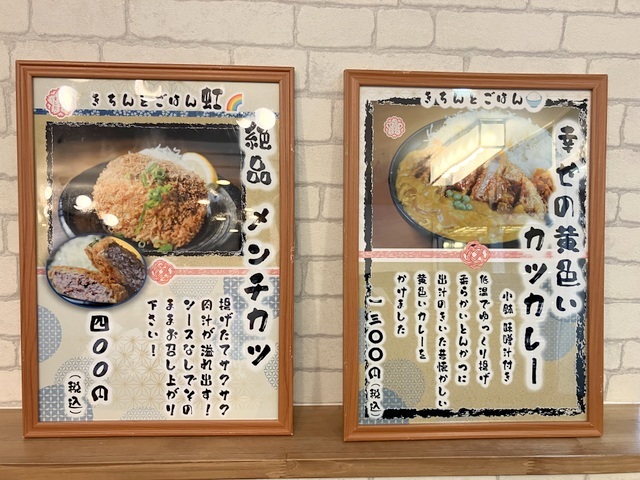 きちんとごはん 虹
絶品 メンチカツ
揚げたてサクサク
肉汁が溢れ出す！
ソースなしでその
ままお召し上がり
下さい！
四〇〇円
（税込）
きちんとごはん
幸せの黄色い
カツカレー
小鉢 味噌汁付き
低温でゆっくり揚げ
柔らかいとんかつに
出汁のきいた昔懐かしい
黄色いカレーを
かけました
一三〇〇円（税込）